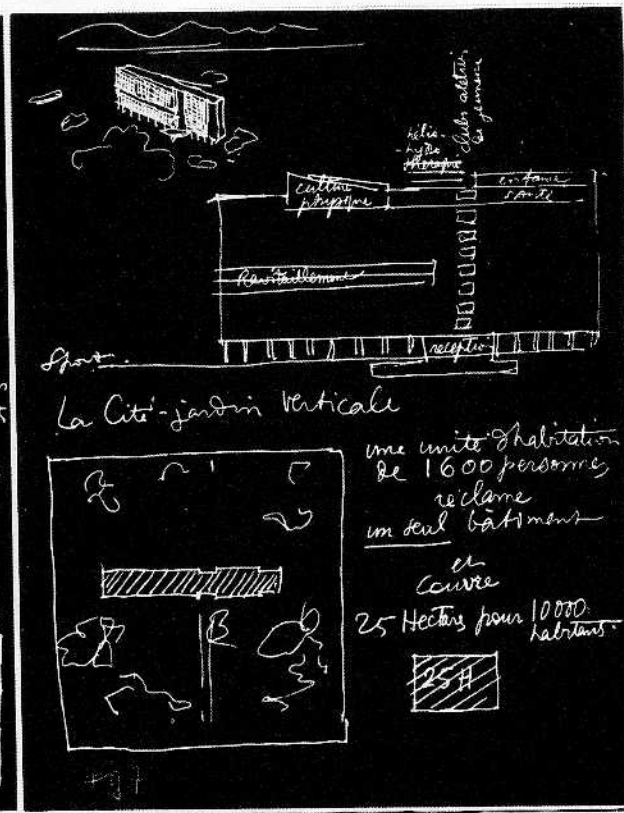 hélio-
hydro
thérapie
clubs ateliers
de jeunesse
culture
physique
enfance
santé
Ravitaillement
Sport
réception
La Cité-jardin verticale
une unité d'habitation
de 1600 personnes
réclame
un seul bâtiment
et
couvre
25 Hectares pour 10000
habitants.
B
25 H